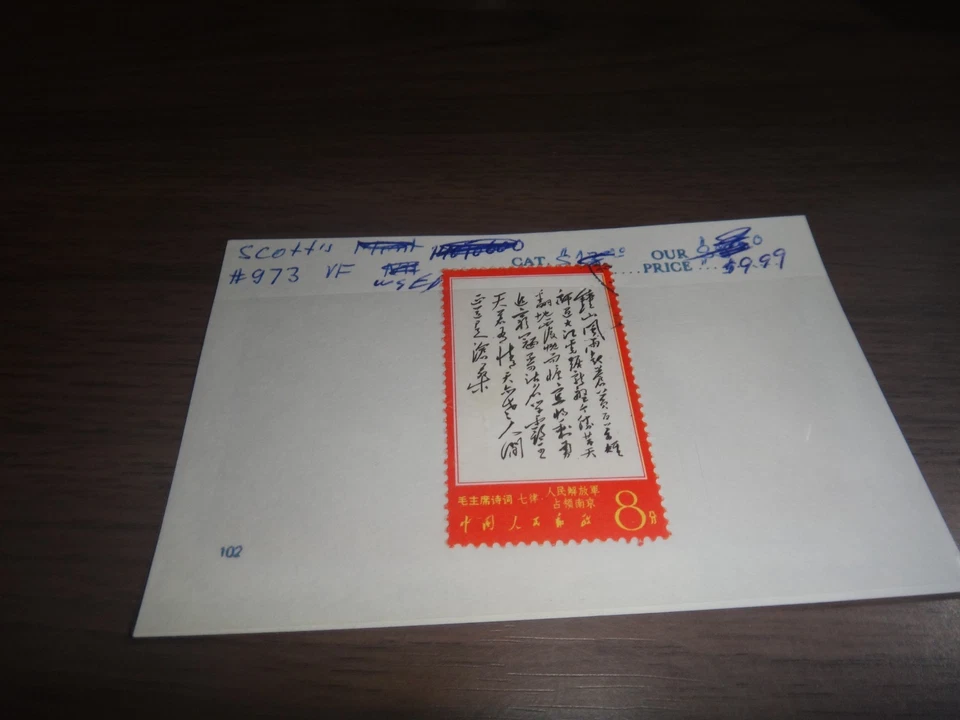 Scott's
#973 VF used
CAT. $
OUR
PRICE ... $9.99
鍾山風雨起蒼黃百万雄
師過大江虎踞龍盤今勝昔天
翻地覆慨而慷宜將剩勇
追窮寇不可沽名學霸王
天若有情天亦老人間
正道是滄桑
毛主席诗词 七律·人民解放軍
占领南京
中国人民邮政 8分
102